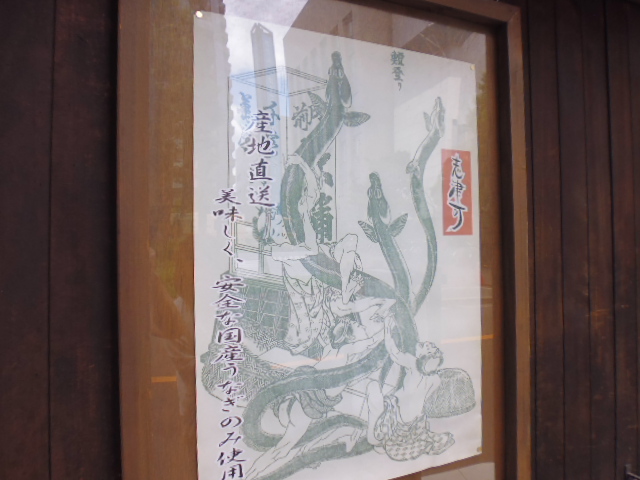 鰻登り
志津可
産地直送
美味しく、安全な国産うなぎのみ使用